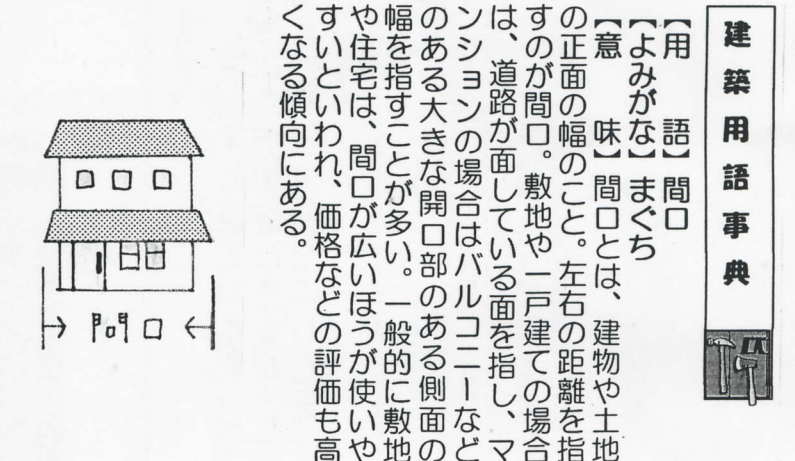 建築用語事典
【用　　語】間口
【よみがな】まぐち
【意　　味】間口とは、建物や土地
の正面の幅のこと。左右の距離を指
すのが間口。敷地や一戸建ての場合
は、道路が面している面を指し、マ
ンションの場合はバルコニーなど
のある大きな開口部のある側面の
幅を指すことが多い。一般的に敷地
や住宅は、間口が広いほうが使いや
すいといわれ、価格などの評価も高
くなる傾向にある。
間口